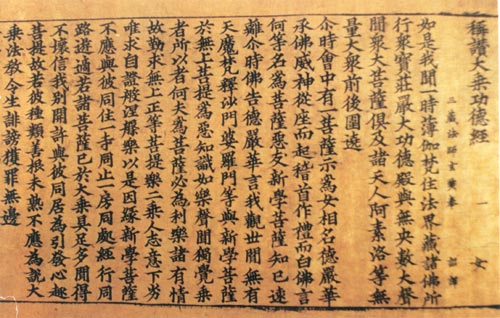 稱讚大乘功德經 一 女
三藏法師玄奘奉 詔譯
如是我聞一時薄伽梵住法界藏諸佛所
行衆寶莊嚴大功德殿與無央數大聲
聞衆大菩薩俱及諸天人阿素洛等無
量大衆前後圍遶
尒時會中有一菩薩示爲女相名德嚴華
承佛威神從座而起稽首作禮而白佛言
何等名爲菩薩惡友新學菩薩知已速
離尒時佛告德嚴華言我觀世間無有
天魔梵釋沙門婆羅門等與新學菩薩
於無上菩提爲惡知識如樂聲聞獨覺乘
者所以者何夫爲菩薩必爲利樂諸有情
故勤求無上正等菩提樂二乘人志意下劣
唯求自證般涅槃樂以是因緣新學菩薩
不應與彼同住一寺同止一房同處經行同
路遊適若諸菩薩已於大乘具足多聞得
不壞信我別開許與彼同居爲引發心趣
菩提故若彼種類善根未熟不應爲說大
乘法教令生誹謗獲罪無邊